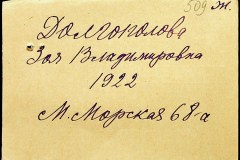 509 ж.
Долгополова
Зоя Владимировна
1922
М. Морская 68-а